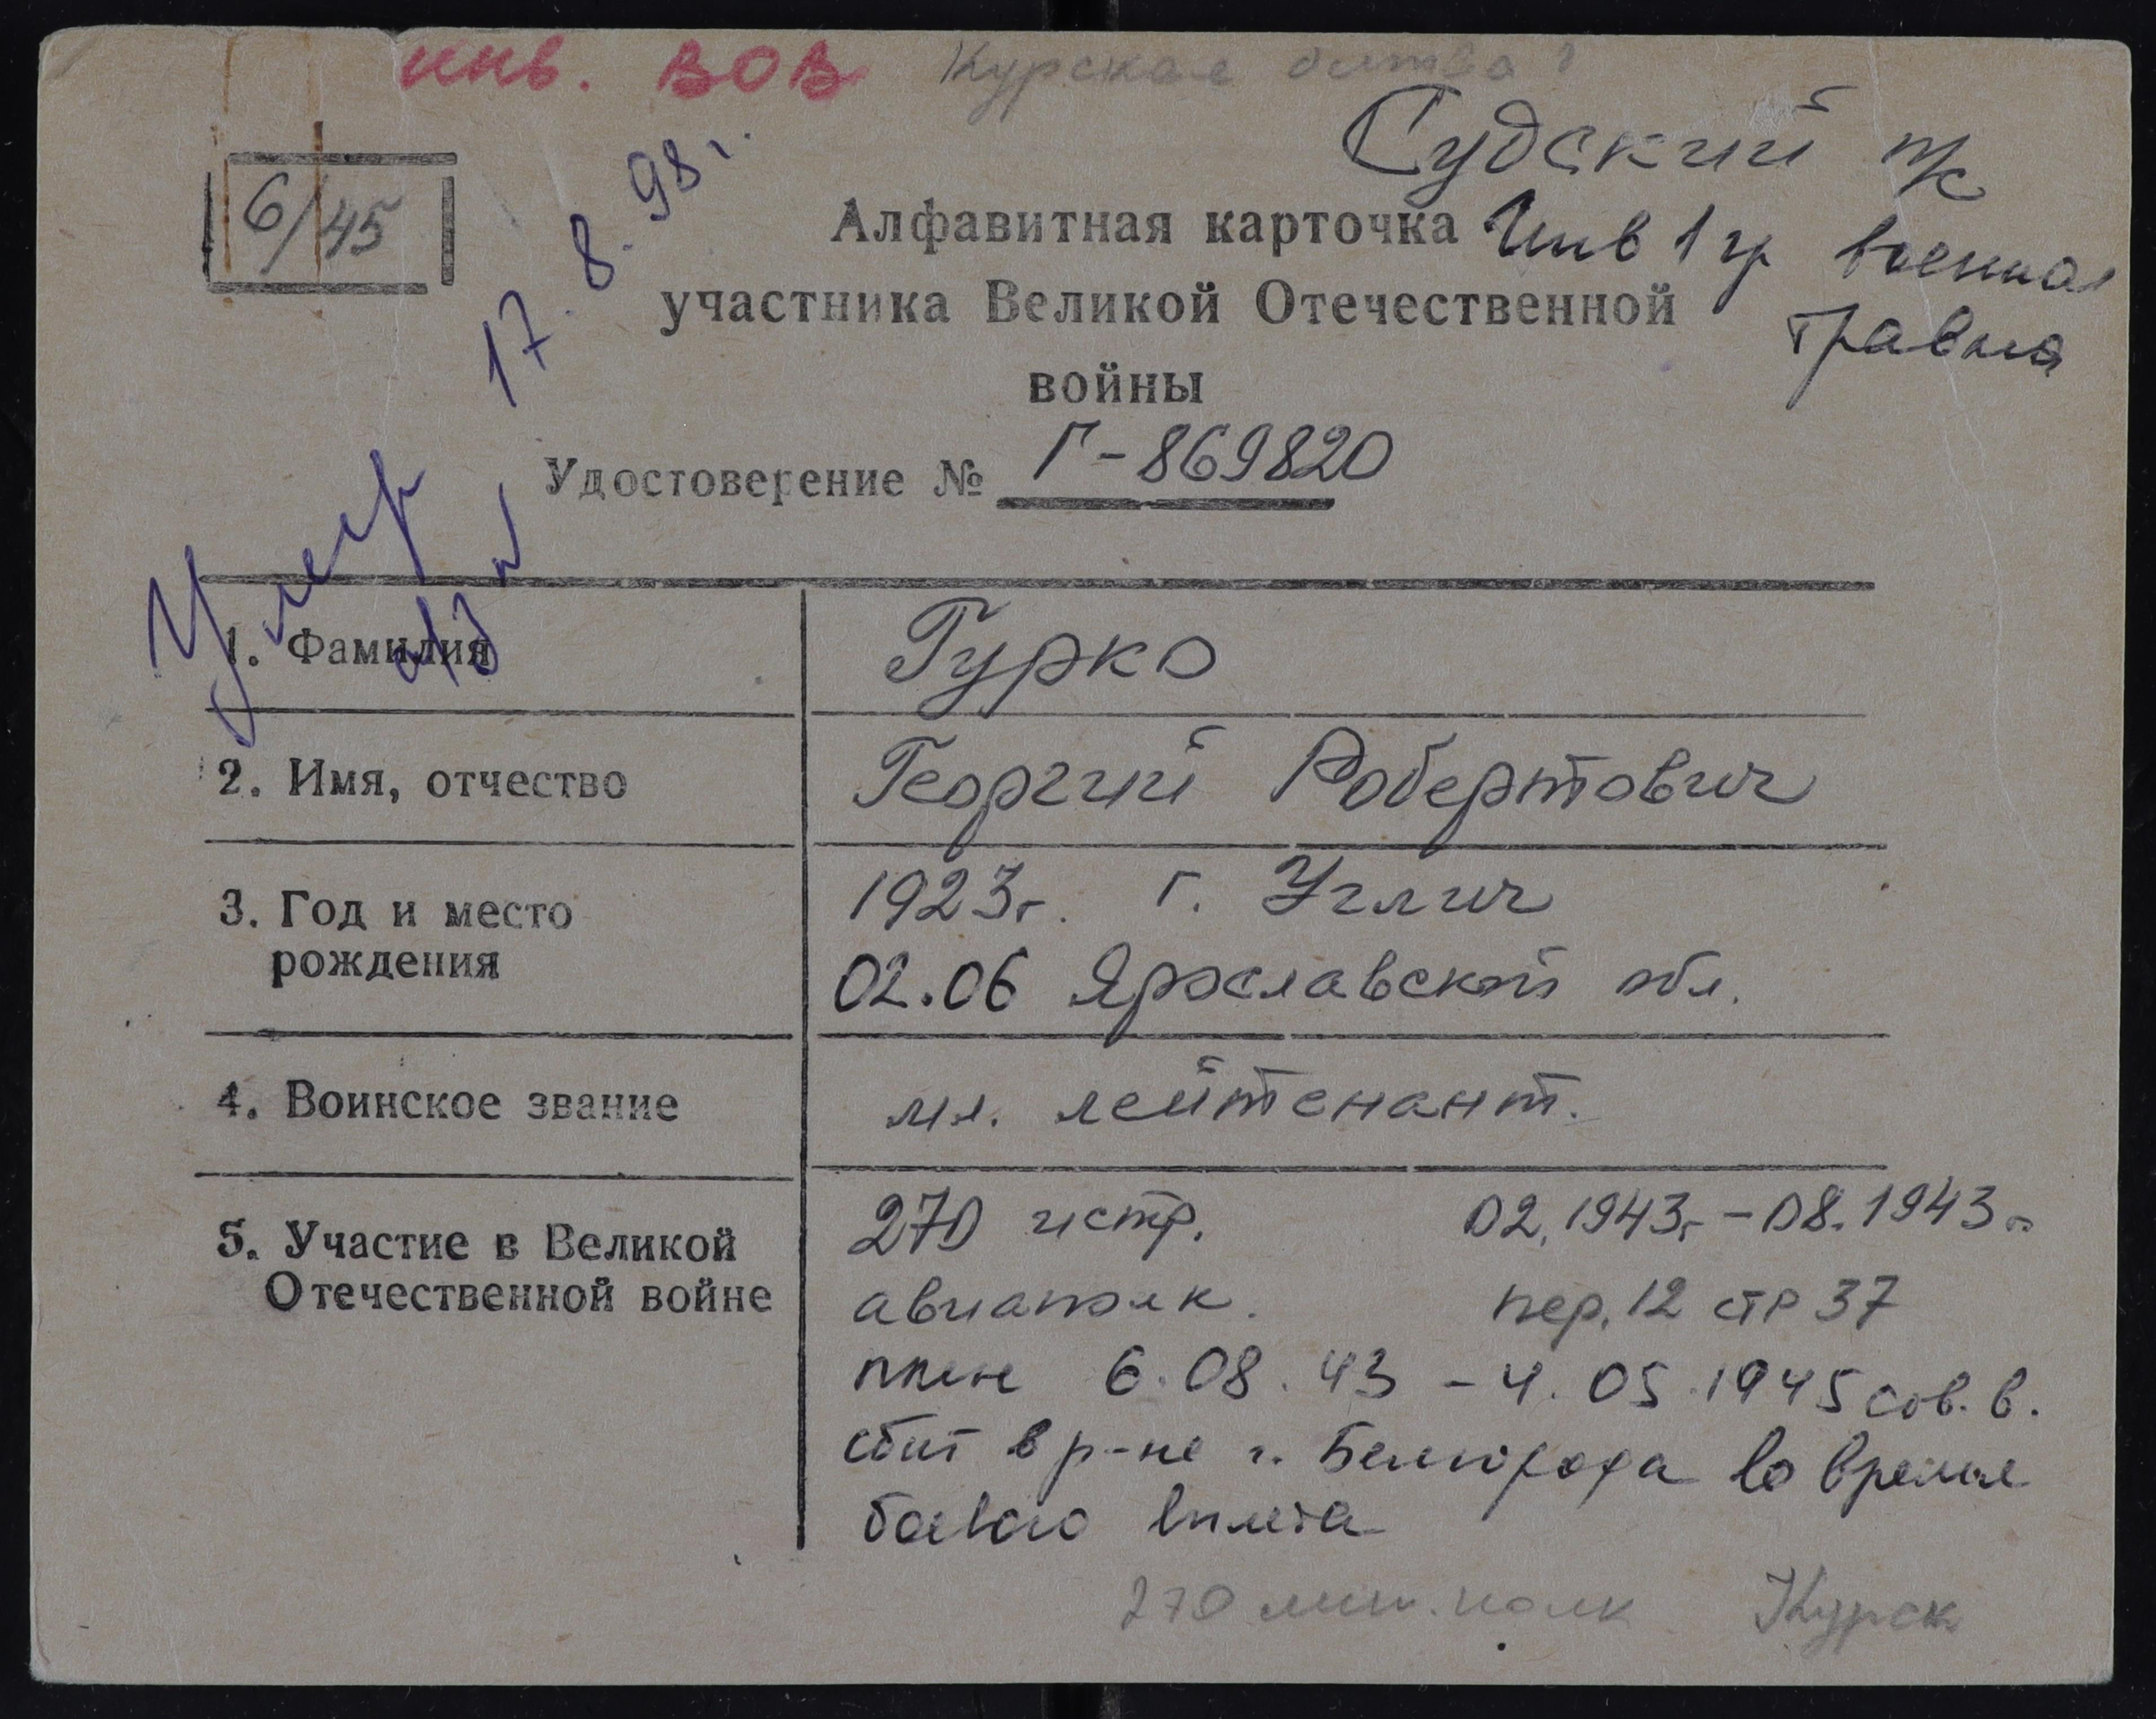 инв. ВОВ Курская битва?
Судский п/с
6/45
17.8.98 г.
Алфавитная карточка
Инв 1 гр военная
участника Великой Отечественной
травма
войны
Удостоверение № Г-869820
Умер
1. Фамилия Гурко
2. Имя, отчество Георгий Робертович
3. Год и место 1923г. г. Углич
рождения 02.06 Ярославской обл.
4. Воинское звание мл. лейтенант.
5. Участие в Великой 270 истр. 02.1943г - 08.1943г
Отечественной войне авиаполк. пер. 12 стр 37
плен 6.08.43 - 4.05.1945 сов. в.
сбит в р-не г. Белгорода во время
боевого вылета
270 полк Курск